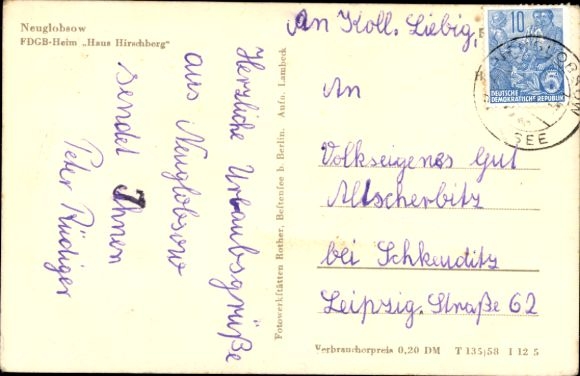 Neuglobsow
FDGB-Heim „Haus Hirschberg"
Herzliche Urlaubsgrüße
aus Neuglobsow
sendet Ihnen
Peter Rüdiger
Fotowerkstätten Rother, Bestensee b. Berlin. Aufn. Lambeck
An Koll. Liebig,
An
Volkseigenes Gut
Altscherbitz
bei Schkeuditz
Leipzig. Straße 62
10
5
DEUTSCHE
DEMOKRATISCHE REPUBLIK
SEE
Verbraucherpreis 0,20 DM T 135/58 I 12 5